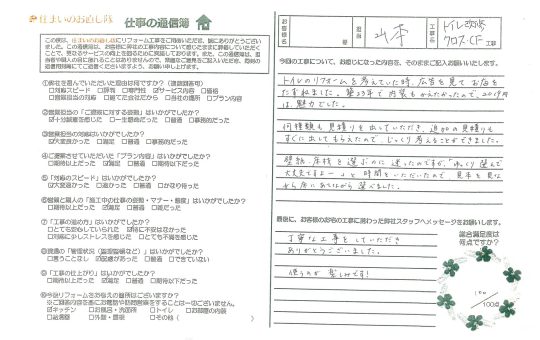 住まいのお直し隊
仕事の通信簿
この度は、住まいのお直し隊にリフォーム工事をご用命いただき、誠にありがとうござい
ました。この通信簿は、お客様に弊社の工事内容について感じたままに評価していただく
ことで、更なるサービスの向上を図るために実施しております。
①弊社を選んでいただいた理由は何ですか？（複数回答可）
□対応スピード □評判 □専門性 ☑サービス内容 □価格
□営業担当の対応 □建てた会社だから □会社の場所 □プラン内容
②営業担当の「ご提案に対する姿勢」はいかがでしたか？
☑十分顧客本位だ □一生懸命だった □普通 □事務的だった
③営業担当の対応はいかがでしたか？
□大変よい □普通 □事務的だった
④ご提案させていただいた「プラン内容」はいかがでしたか？
□期待以上だった ☑満足 □普通 □期待以下だった
⑤「対応のスピード」はいかがでしたか？
☑大変速かった □速かった □普通 □かなり待った
⑥営業と職人の「施工中の仕事の姿勢・マナー・態度」はいかがでしたか？
□期待以上だった ☑満足 □普通 □雑だった
⑦「工事の進め方」はいかがでしたか？
□とても安心していられた ☑特に不安はなかった
□対応に少しストレスを感じた □とても不満を感じた
⑧現場の「管理状況（整理整頓など）」はいかがでしたか？
□言うことなし ☑配慮があった □普通 □できていない
⑨「工事の仕上がり」はいかがでしたか？
□期待以上だった ☑満足 □普通 □期待以下だった
⑩今後リフォームをお考えの箇所はございますか？
☑キッチン □お風呂・洗面所 □トイレ □お部屋の内装
□給湯器 □外壁・屋根 □その他（ ）
お客様名
担当
山本
工事名
トイレ改修
クロス・CF
工事
今回の工事について、お感じになった内容を、そのままご記入お願いいたします。
トイレのリフォームを考えていた時、広告を見てお店を
たずねました。築23年で内装もかえたかったので、20.19万円
は魅力でした。
何種類も見積りを出していただき、追加の見積りも
すぐに出してもらえたので、じっくり考えることができました。
壁紙・床板を選ぶのに迷ったのですが、「ゆっくり選んで
大丈夫ですよー」と時間をいただいたので、見本を見な
がら選べました。
最後に、お客様のお宅の工事に携わった弊社スタッフへメッセージをお願いします。
丁寧な工事をしていただき
ありがとうございました。
使うのが楽しみです!
総合満足度は
何点ですか？
100
/100点